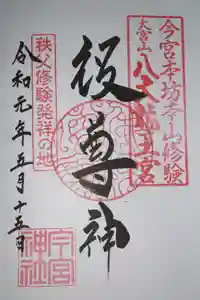 今宮本坊奉り山修験
大宮山八大龍王宮
役尊神
秩父修験発祥の地
令和元年五月十五日
今宮神社